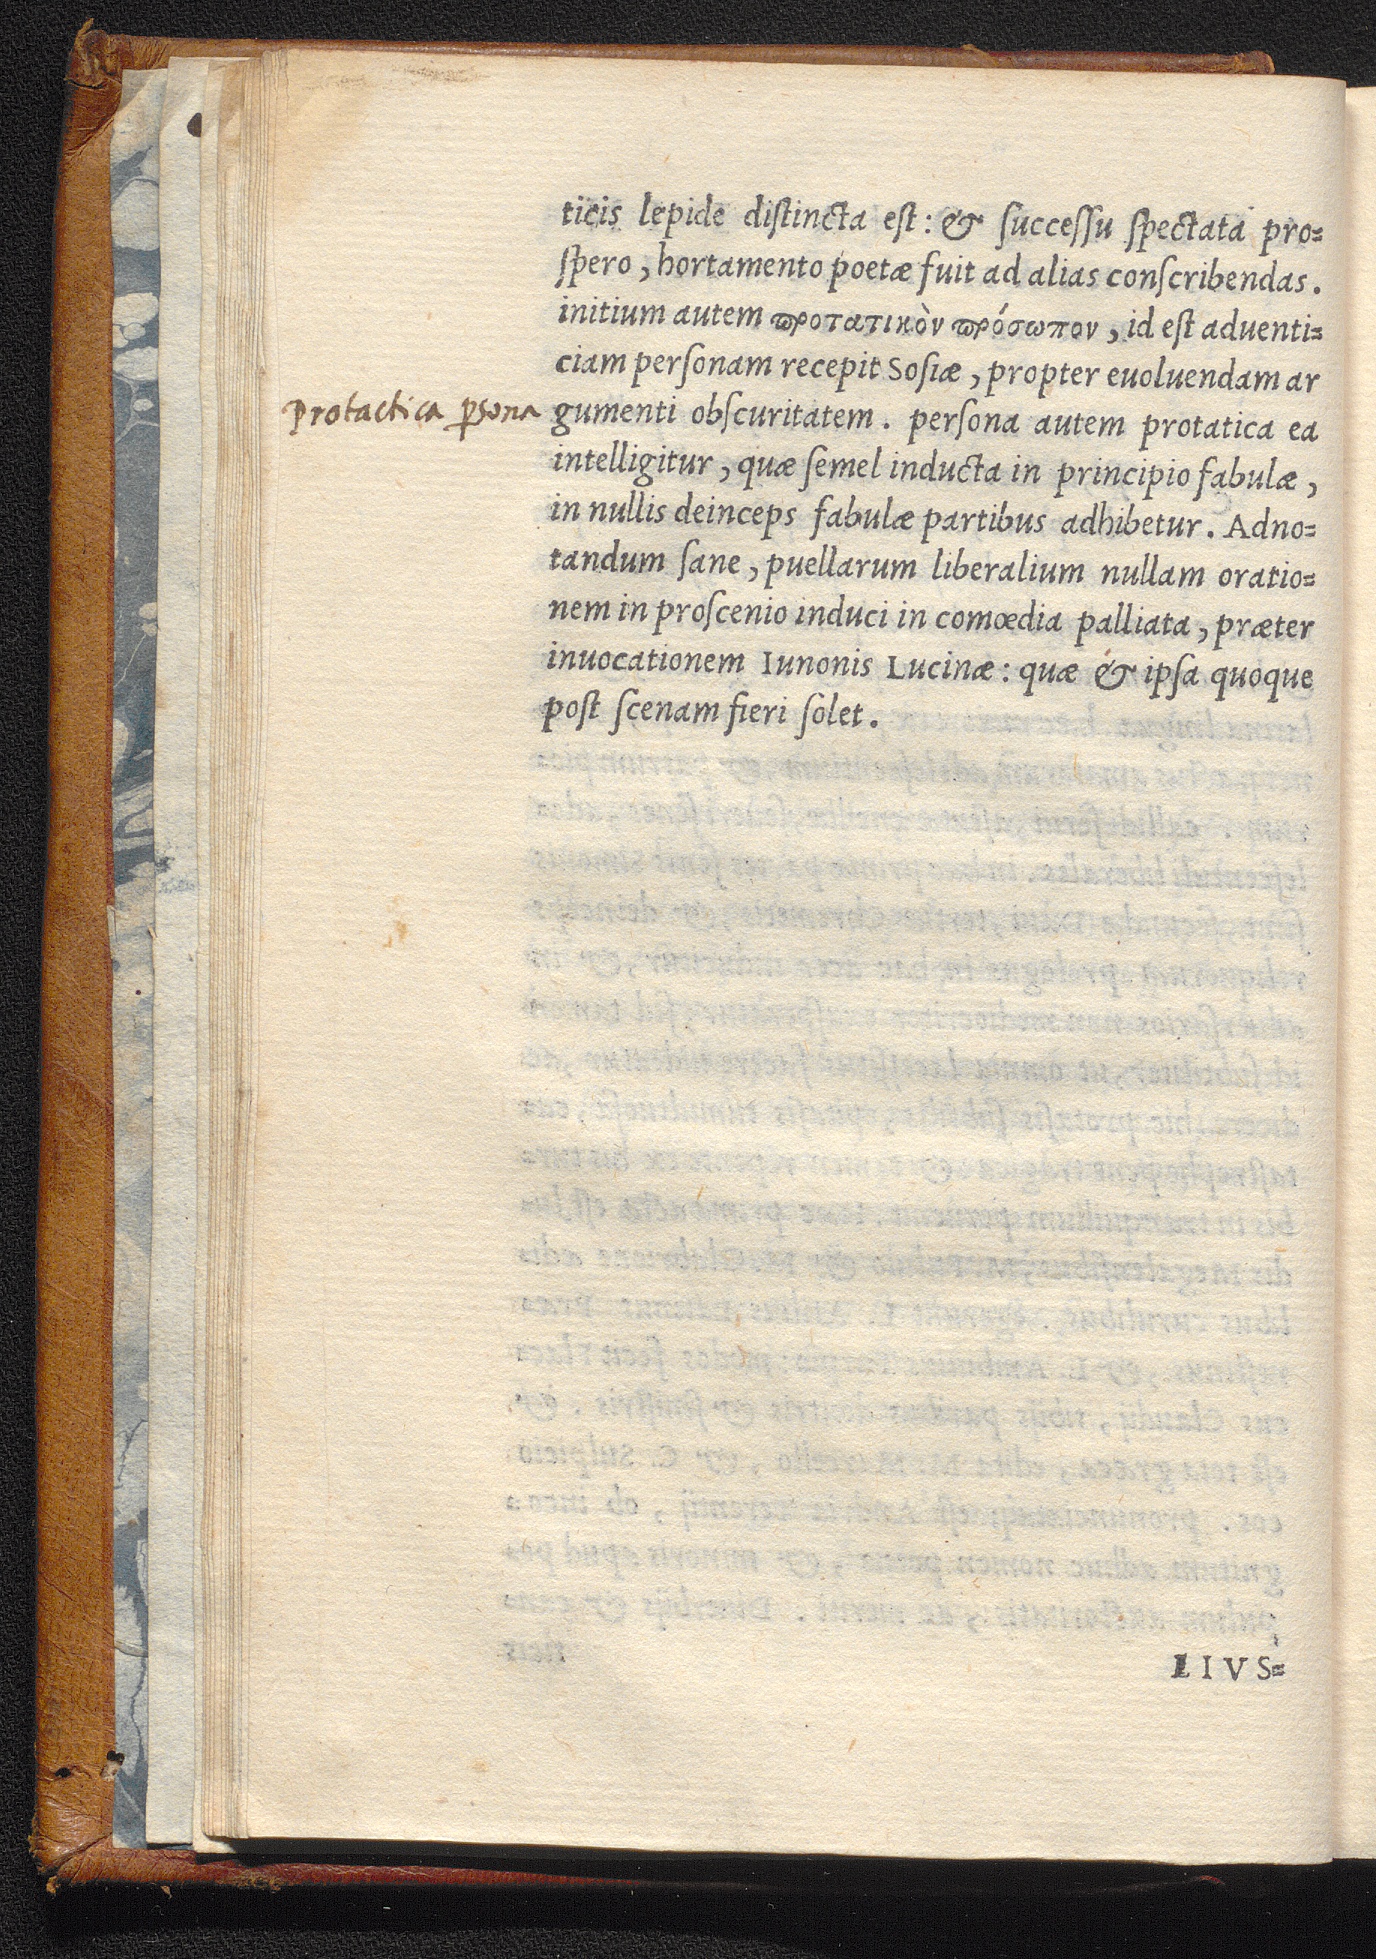 ticis lepide distincta est: & successu spectata pro=
spero, hortamento poetæ fuit ad alias conscribendas.
initium autem προτατικὸν πρόσωπον, id est aduenti=
ciam personam recepit Sosiæ, propter euoluendam ar
Protactica psona
gumenti obscuritatem. persona autem protatica ea
intelligitur, quæ semel inducta in principio fabulæ,
in nullis deinceps fabulæ partibus adhibetur. Adno=
tandum sane, puellarum liberalium nullam oratio=
nem in proscenio induci in comœdia palliata, præter
inuocationem Iunonis Lucinæ: quæ & ipsa quoque
post scenam fieri solet.
LIVS=